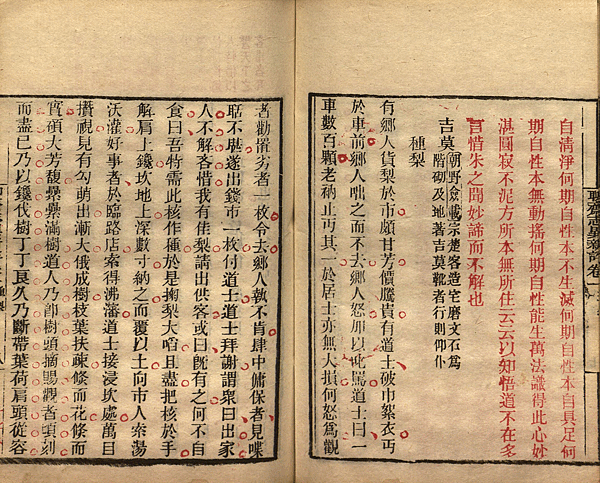 聊齋志異新評卷一
自清淨何期自性本不生滅何期自性本自具足何
期自性本無動搖何期自性能生萬法識得此心妙
湛圓寂不泥方所本無所住云云以知悟道不在多
言惜朱之聞妙諦而不解也
吉莫朝野僉載宗楚客造宅磨文石為
階砌及地著吉莫靴者行則仰仆
種梨
有鄉人貨梨於市頗甘芳價騰貴有道士破巾絮衣丐
於車前鄉人咄之而不去鄉人怒加以叱罵道士曰一
車數百顆老衲止丐其一於居士亦無大損何怒為觀
者勸置劣者一枚令去鄉人執不肯肆中傭保者見喋
聒不堪遂出錢市一枚付道士道士拜謝謂眾曰出家
人不解吝惜我有佳梨請出供客或曰既有之何不自
食曰吾特需此核作種於是掬梨大啗且盡把核於手
解肩上鑱坎地上深數寸納之而覆以土向市人索湯
沃灌好事者於臨路店索得沸瀋道士接浸坎處萬目
攢視見有勾萌出漸大俄成樹枝葉扶疎倏而花倏而
實碩大芳馥纍纍滿樹道人乃即樹頭摘賜觀者頃刻
而盡已乃以鑱伐樹丁丁良久乃斷帶葉荷肩頭從容